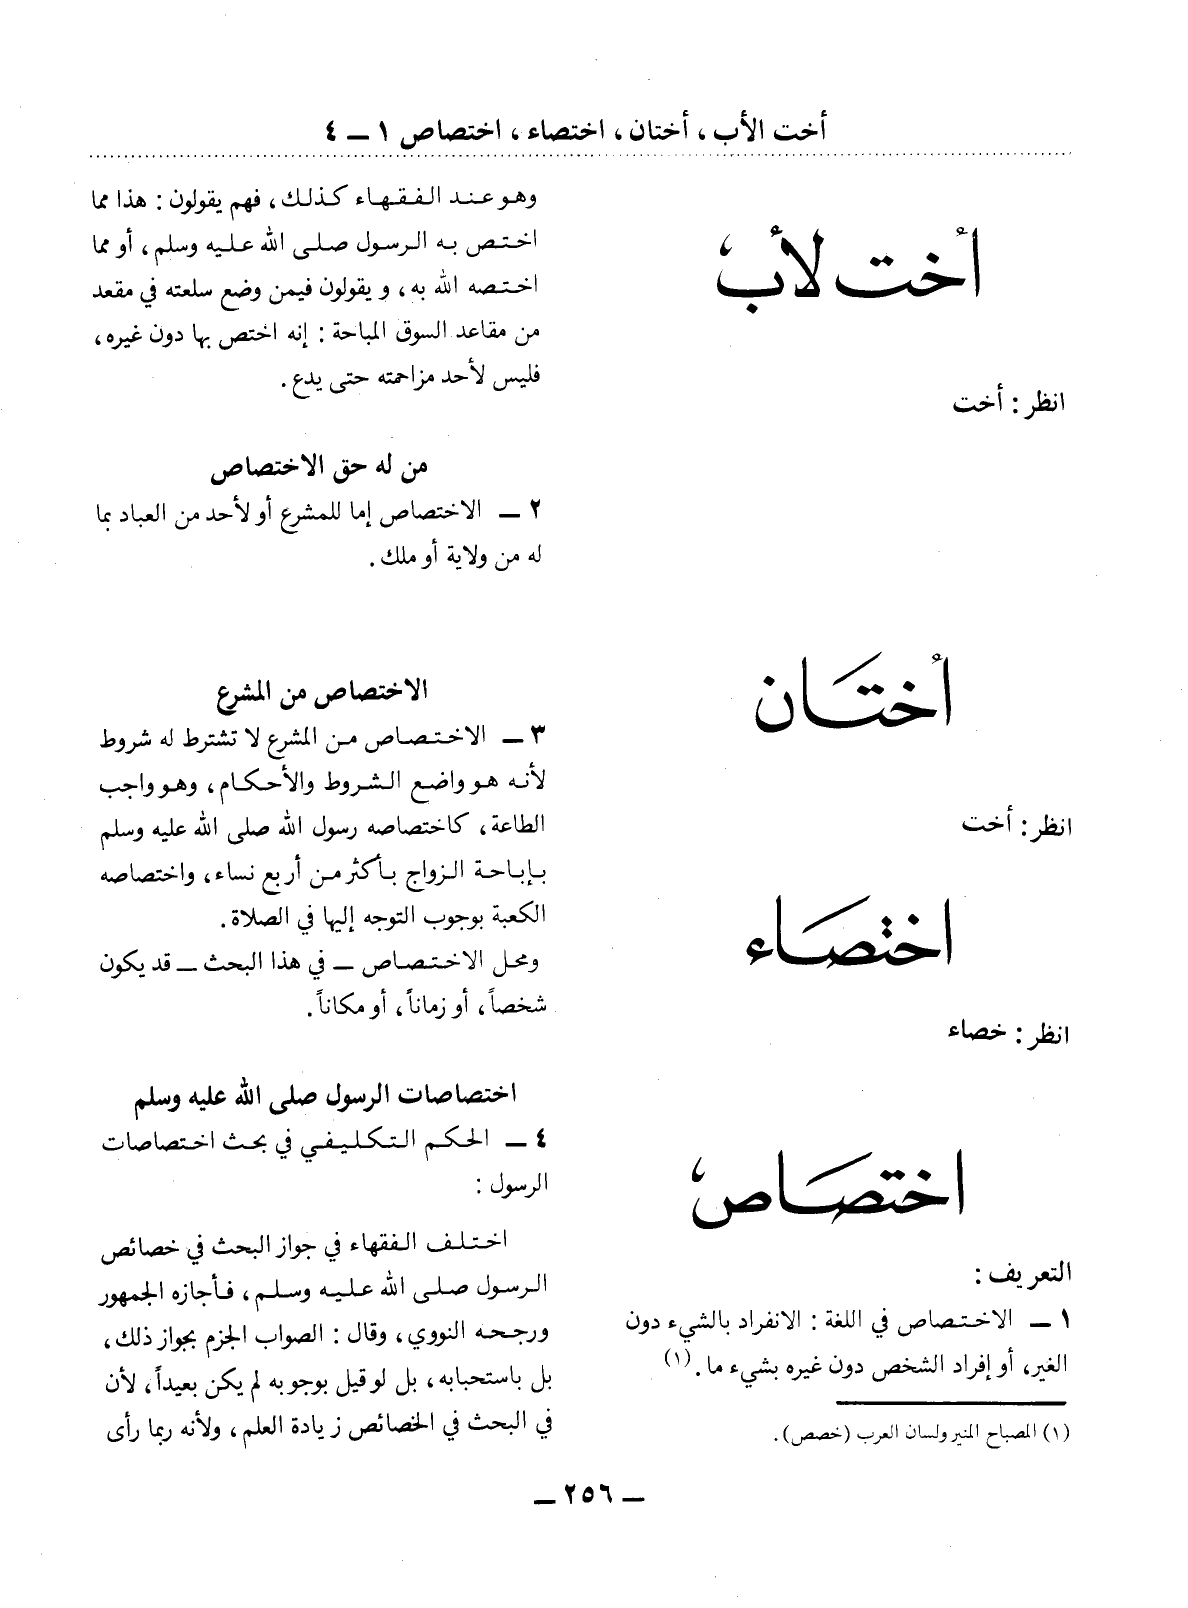 أخت الأب ، أختان ، اختصاء ، اختصاص ١ ــ ٤
أُخت لأب
انظر : أخت
أُختان
انظر : أخت
اختصاء
انظر : خصاء
اختصاص
التعريف :
١ ــ الاختصاص في اللغة : الانفراد بالشيء دون
الغير، أو إفراد الشخص دون غيره بشيء ما . (١)
(١) المصباح المنير ولسان العرب (خصص) .
وهو عند الفقهاء كذلك ، فهم يقولون : هذا مما
اختص به الرسول صلى الله عليه وسلم ، أو مما
اختصه الله به ، و يقولون فيمن وضع سلعته في مقعد
من مقاعد السوق المباحة : إنه اختص بها دون غيره ،
فليس لأحد مزاحمته حتى يدع .
من له حق الاختصاص
٢ ــ الاختصاص إما للمشرع أو لأحد من العباد بما
له من ولاية أو ملك .
الاختصاص من المشرع
٣ ــ الاختصاص من المشرع لا تشترط له شروط
لأنه هو واضع الشروط والأحكام ، وهو واجب
الطاعة ، كاختصاصه رسول الله صلى الله عليه وسلم
بإباحة الزواج بأكثر من أربع نساء ، واختصاصه
الكعبة بوجوب التوجه إليها في الصلاة .
ومحل الاختصاص ــ في هذا البحث ــ قد يكون
شخصاً ، أو زماناً ، أو مكاناً .
اختصاصات الرسول صلى الله عليه وسلم
٤ ــ الحكم التكليفي في بحث اختصاصات
الرسول :
اختلف الفقهاء في جواز البحث في خصائص
الرسول صلى الله عليه وسلم ، فأجازه الجمهور
ورجحه النووي ، وقال : الصواب الجزم بجواز ذلك ،
بل باستحبابه ، بل لو قيل بوجوبه لم يكن بعيداً ، لأن
في البحث في الخصائص زيادة العلم ، ولأنه ربما رأى
ــ ٢٥٦ ــ